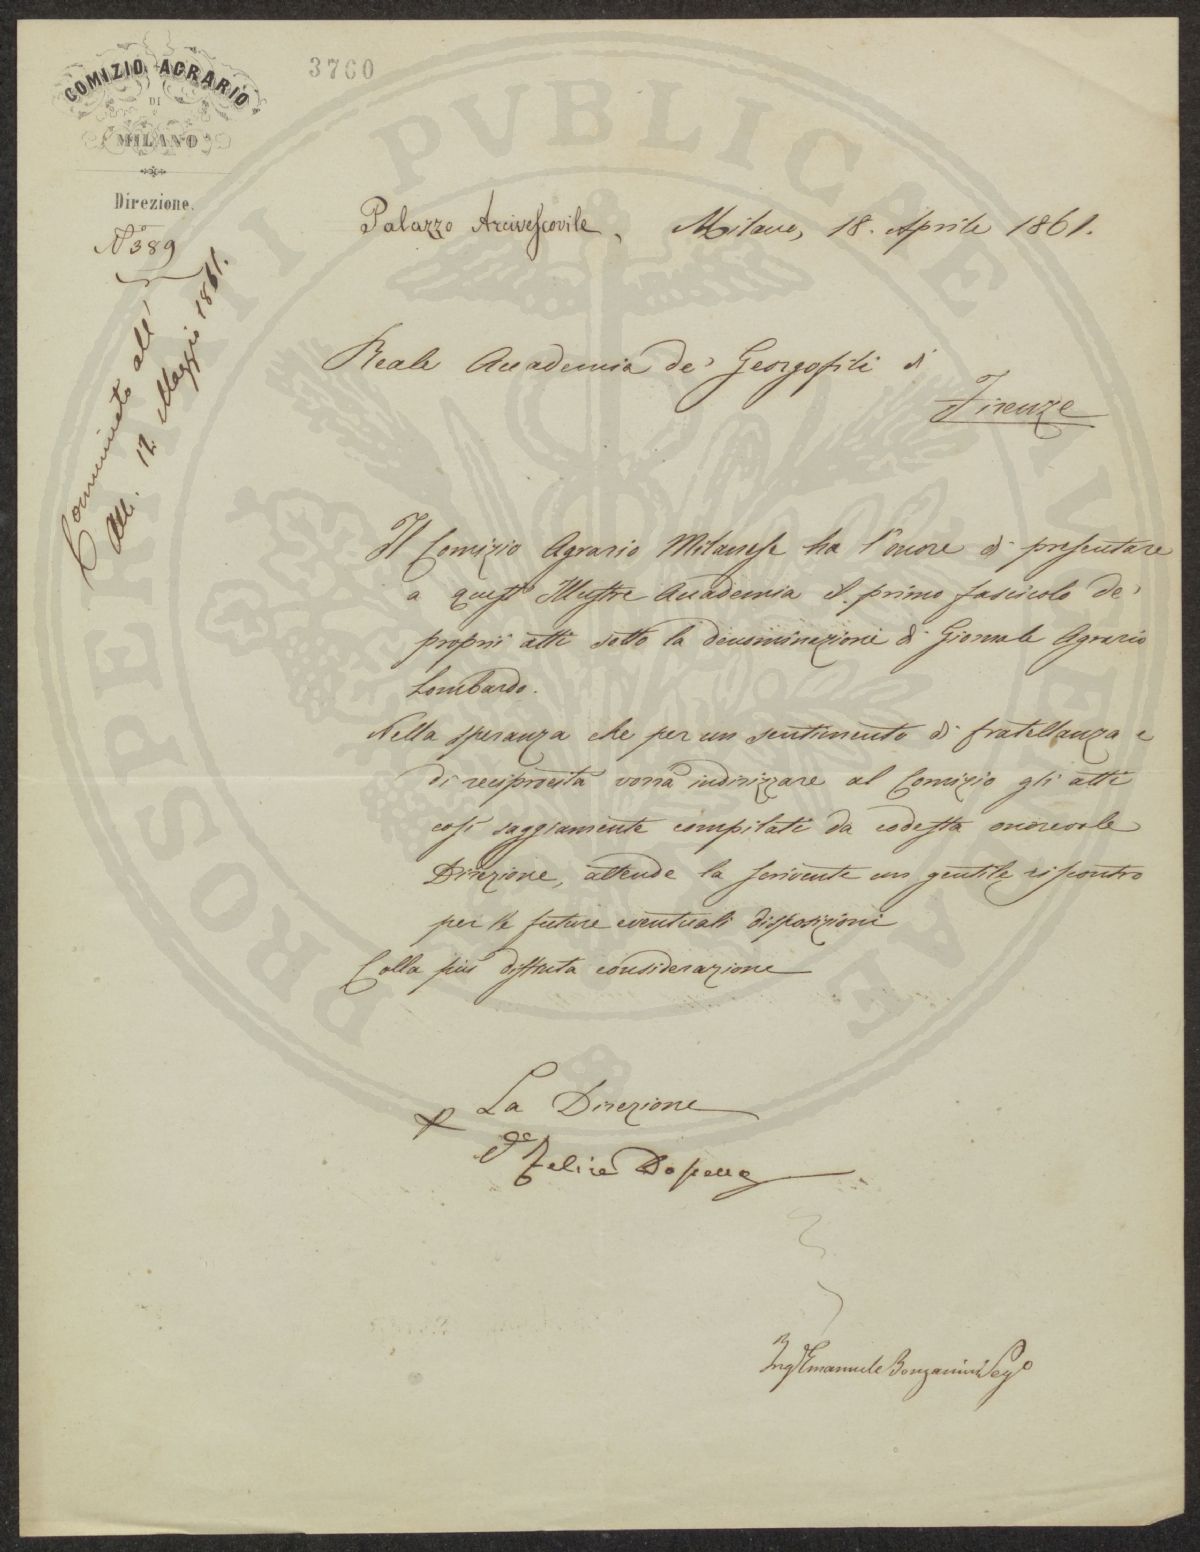 COMIZIO AGRARIO
DI
MILANO
3760
Direzione.
N.° 389
Comunicato all'
Ad. 12 Maggio 1861.
Palazzo Arcivescovile, Milano, 18. Aprile 1861.
Reale Accademia de' Georgofili di
Firenze
Il Comizio Agrario Milanese ha l'onore di presentare
a quest' Illustre Accademia il primo fascicolo de'
proprii atti sotto la denominazione di Giornale Agrario
Lombardo.
Nella speranza che per un sentimento di fratellanza e
di reciprocità vorrà indirizzare al Comizio gli atti
così saggiamente compilati da codesta onorevole
Direzione, attende la scrivente un gentile riscontro
per le future eventuali disposizioni
Colla più distinta considerazione
La Direzione
Felice
Ing.e Emanuele Bonzanini Seg.o
PROSPERITATI PVBLICAE AVGENDAE